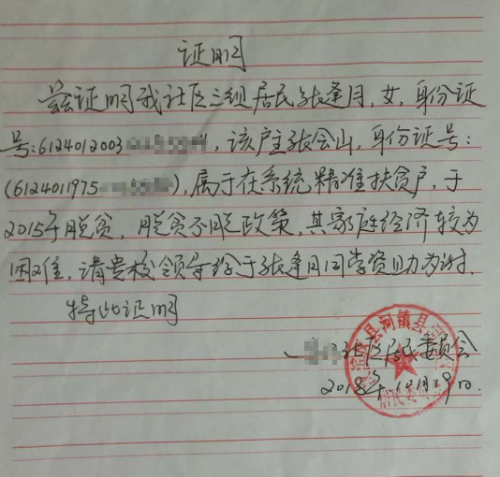 证明
兹证明我社区三组居民张逢月,女,身份证
号:6124012003,该户主张会山,身份证号:
(6124011975),属于在系统精准扶贫户,于
2015年脱贫,脱贫不脱政策,其家庭经济较为
困难,请贵校领导给于张逢月同学资助为谢.
特此证明
社区居民委员会
2018年10月9日.